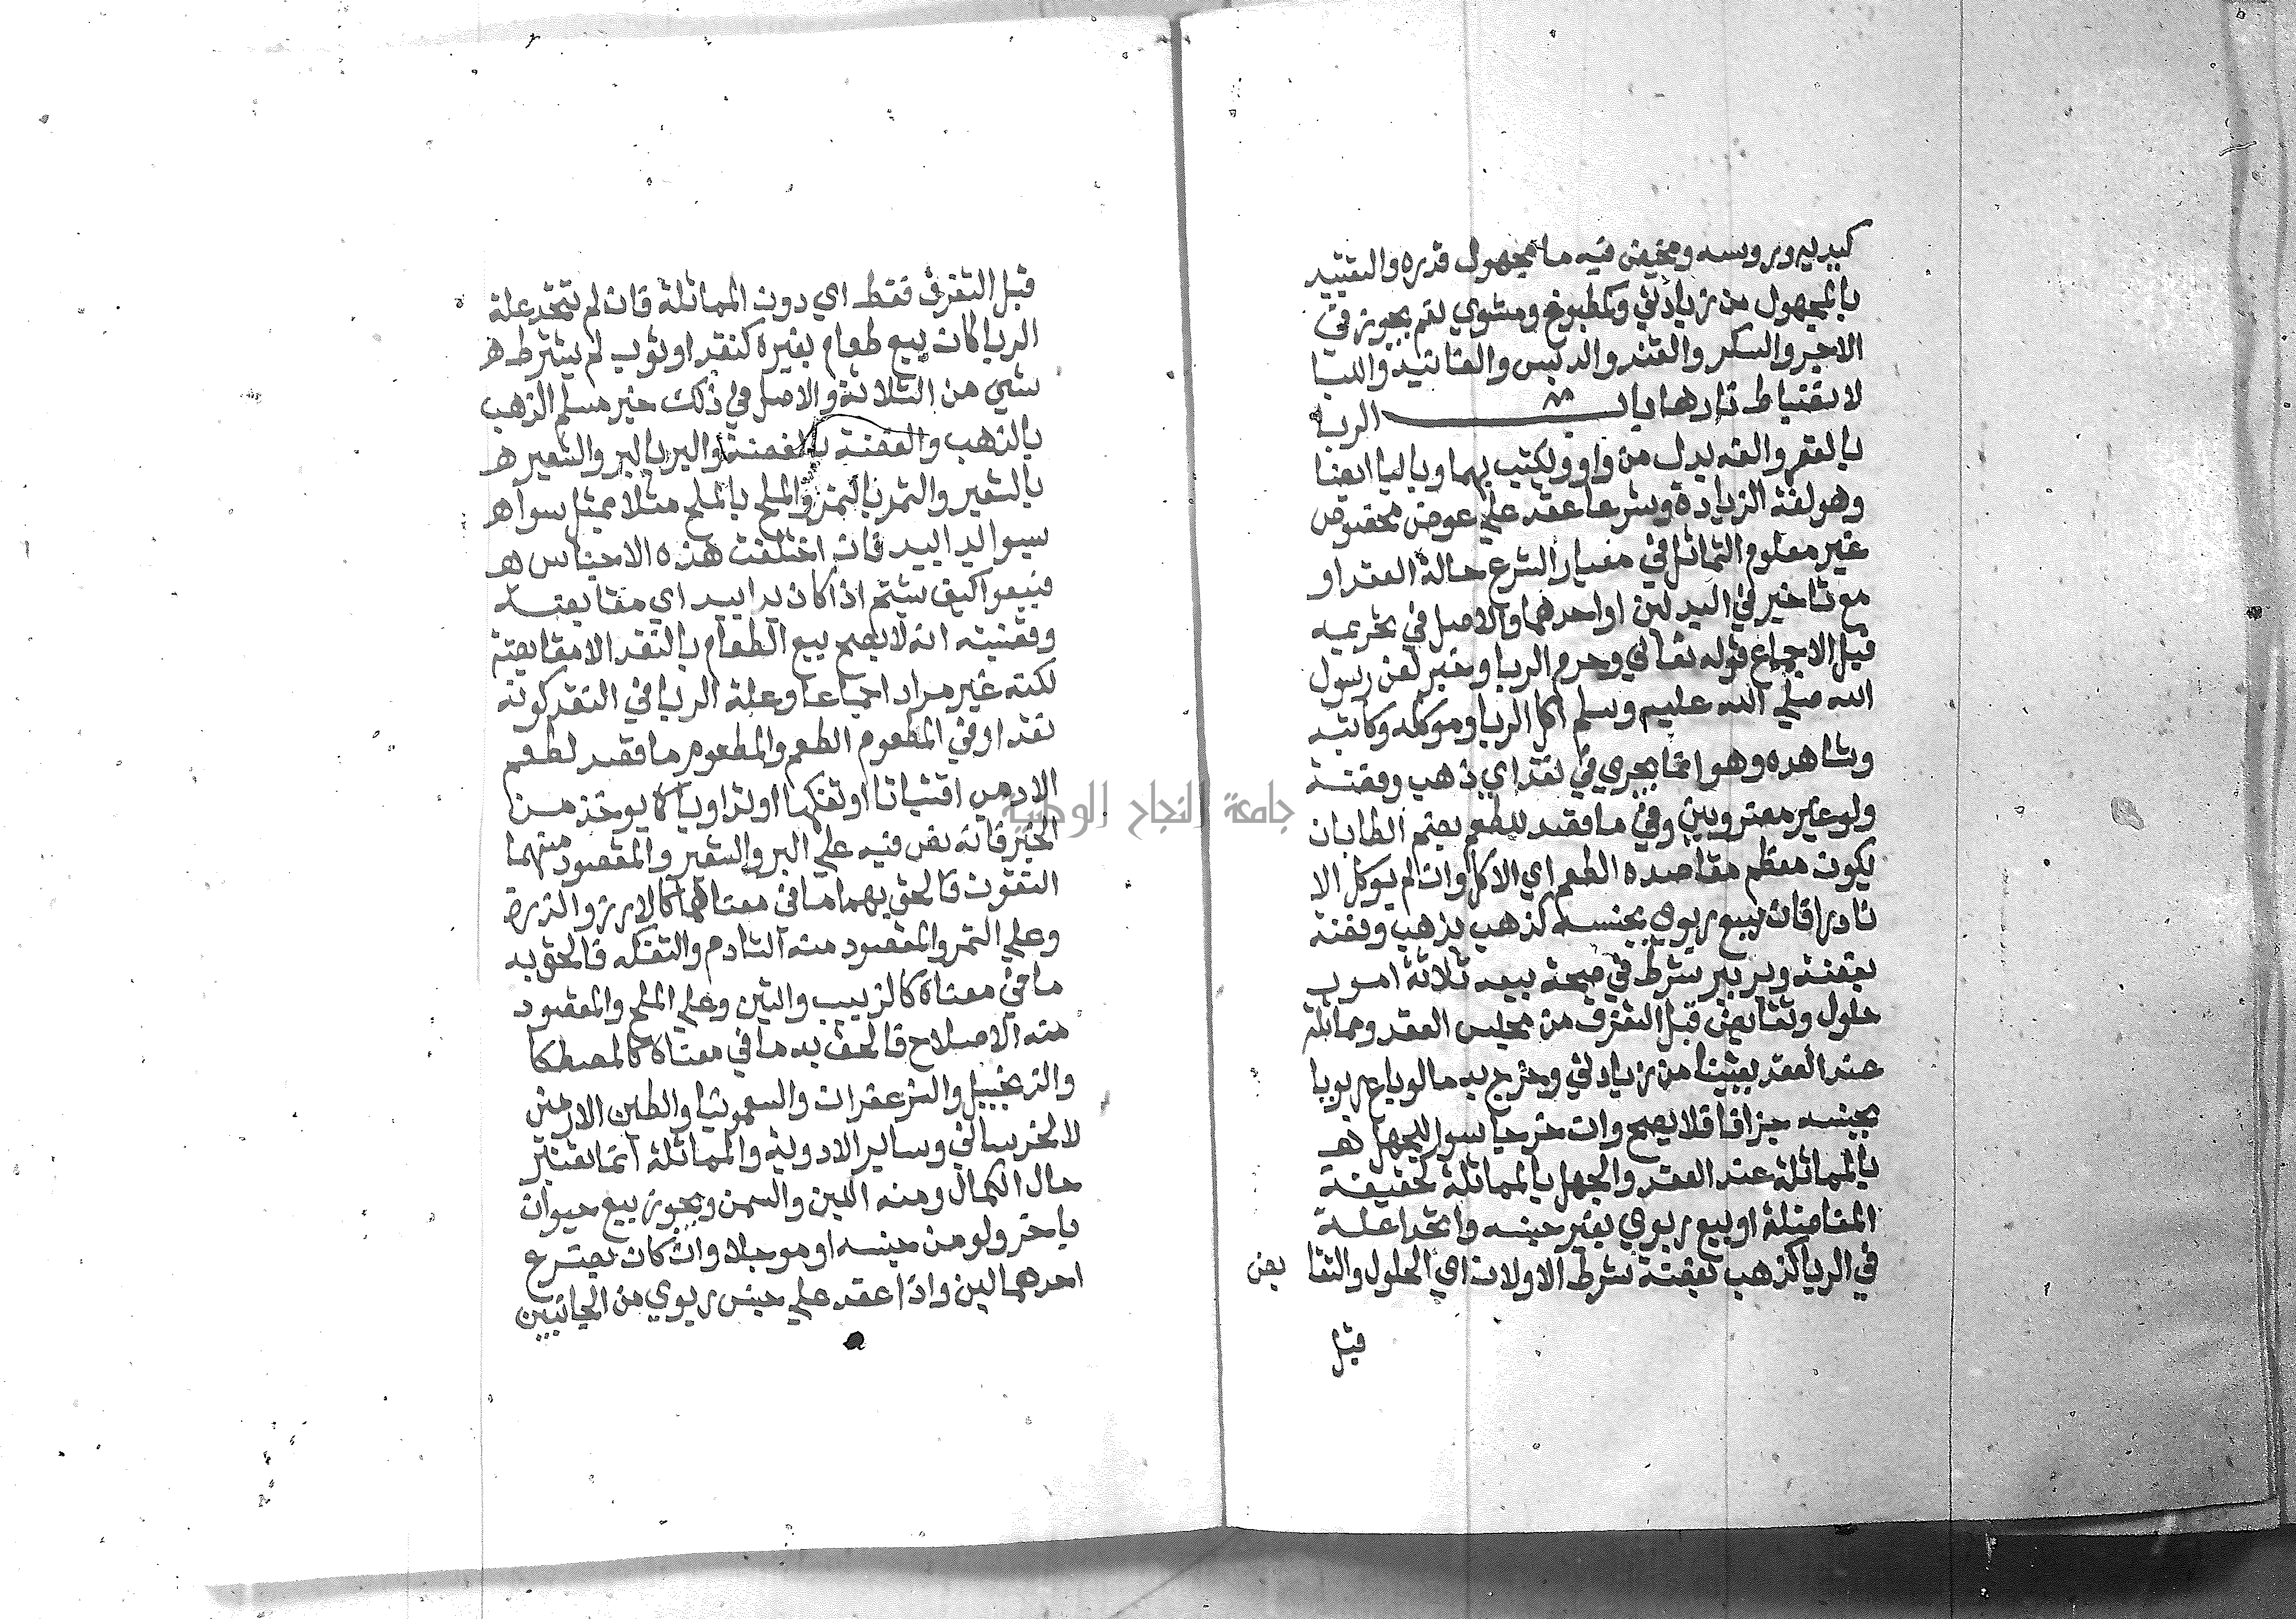 كيديه وروسه ومخيض فيه ما مجهول قدره والتقييد
بالمجهول من زيادتي وكمطبوخ ومشوي نعم يجوز في
الاجر والسكر والقند والدبس والفانيد واللبا
لانضباط نارها باب الربا
بالقصر والفه بدل من واو ويكتب بهما وباليا ايضا
وهو لغة الزيادة وشرعا عقد علي عوض مخصوص
غير معلوم التماثل في معيار الشرع حالة العقد او
مع تاخير في البدلين او احدهما والاصل في تحريمه
قبل الاجماع قوله تعالي وحرم الربا وخبر لعن رسول
الله صلي الله عليه وسلم اكل الربا وموكله وكاتبه
وشاهده وهو انما يجري في نقد اي ذهب وفضة
ولو غير مضروبين وفي ما قصد لطعم بضم الطا بان
يكون معظم مقاصده الطعم اي الاكل وان لم يوكل الا
نادرا فان بيع ربوي بجنسه كذهب بذهب وفضة
بفضة وبر ببر شرط في صحة بيعه ثلاثة امور
حلول وتقابض قبل التفرق من مجلس العقد ومماثلة
عند العقد يقينا من زيادتي وخرج به ما لو باع ربويا
بجنسه جزافا فلا يصح وان خرجا سوا للجهل هـ
بالمماثلة عند العقد والجهل بالمماثلة كحقيقة
المفاضلة او بيع ربوي بغير جنسه واتحدا علة
في الربا كذهب بفضة شرط الاولان اي الحلول والتقا بض
قبل
قبل التفرق فقط اي دون المماثلة فان لم تتحد علة
الربا كان بيع طعام بغيره كنقد او ثوب لم يشترط هـ
شي من الثلاثة والاصل في ذلك خبر مسلم الذهب
بالذهب والفضة بالفضة والبر بالبر والشعير هـ
بالشعير والتمر بالتمر والملح بالملح مثلا بمثل سواهـ
بسوا يدا بيد فان اختلفت هذه الاجناس هـ
فبيعوا كيف شيتم اذا كان يدا بيد اي مقابضة
وقضيته انه لا يصح بيع الطعام بالنقد الا مقابضة
لكنه غير مراد اجماعا وعلة الربا في النقد كونه
نقدا وفي المطعوم الطعم والمطعوم ما قصد لطعم
الادمي اقتياتا او تفكها او تداويا كما يوخذ من
الخبر فانه نص فيه علي البر والشعير والمقصود منهما
التقوت فالحق بهما ما في معناهما كالارز والذرة
وعلي التمر والمقصود منه التادم والتفكه فالحق به
ما في معناه كالزبيب والتين وعلي الملح والمقصود
منه الاصلاح فالحق به ما في معناه كالمصطكا
والزنجبيل والزعفران والسقمونيا والطين الارمني
لا الخرساني وساير الادوية والمماثلة انما تعتبر
حال الكمال ومنه اللبن والسمن ويجوز بيع حيوان
باخر ولو من جنسه او موجلا وان كان بضرع
احدهما لبن واذا عقد علي جنس ربوي من الجانبين
جامعة النجاح الوطنية